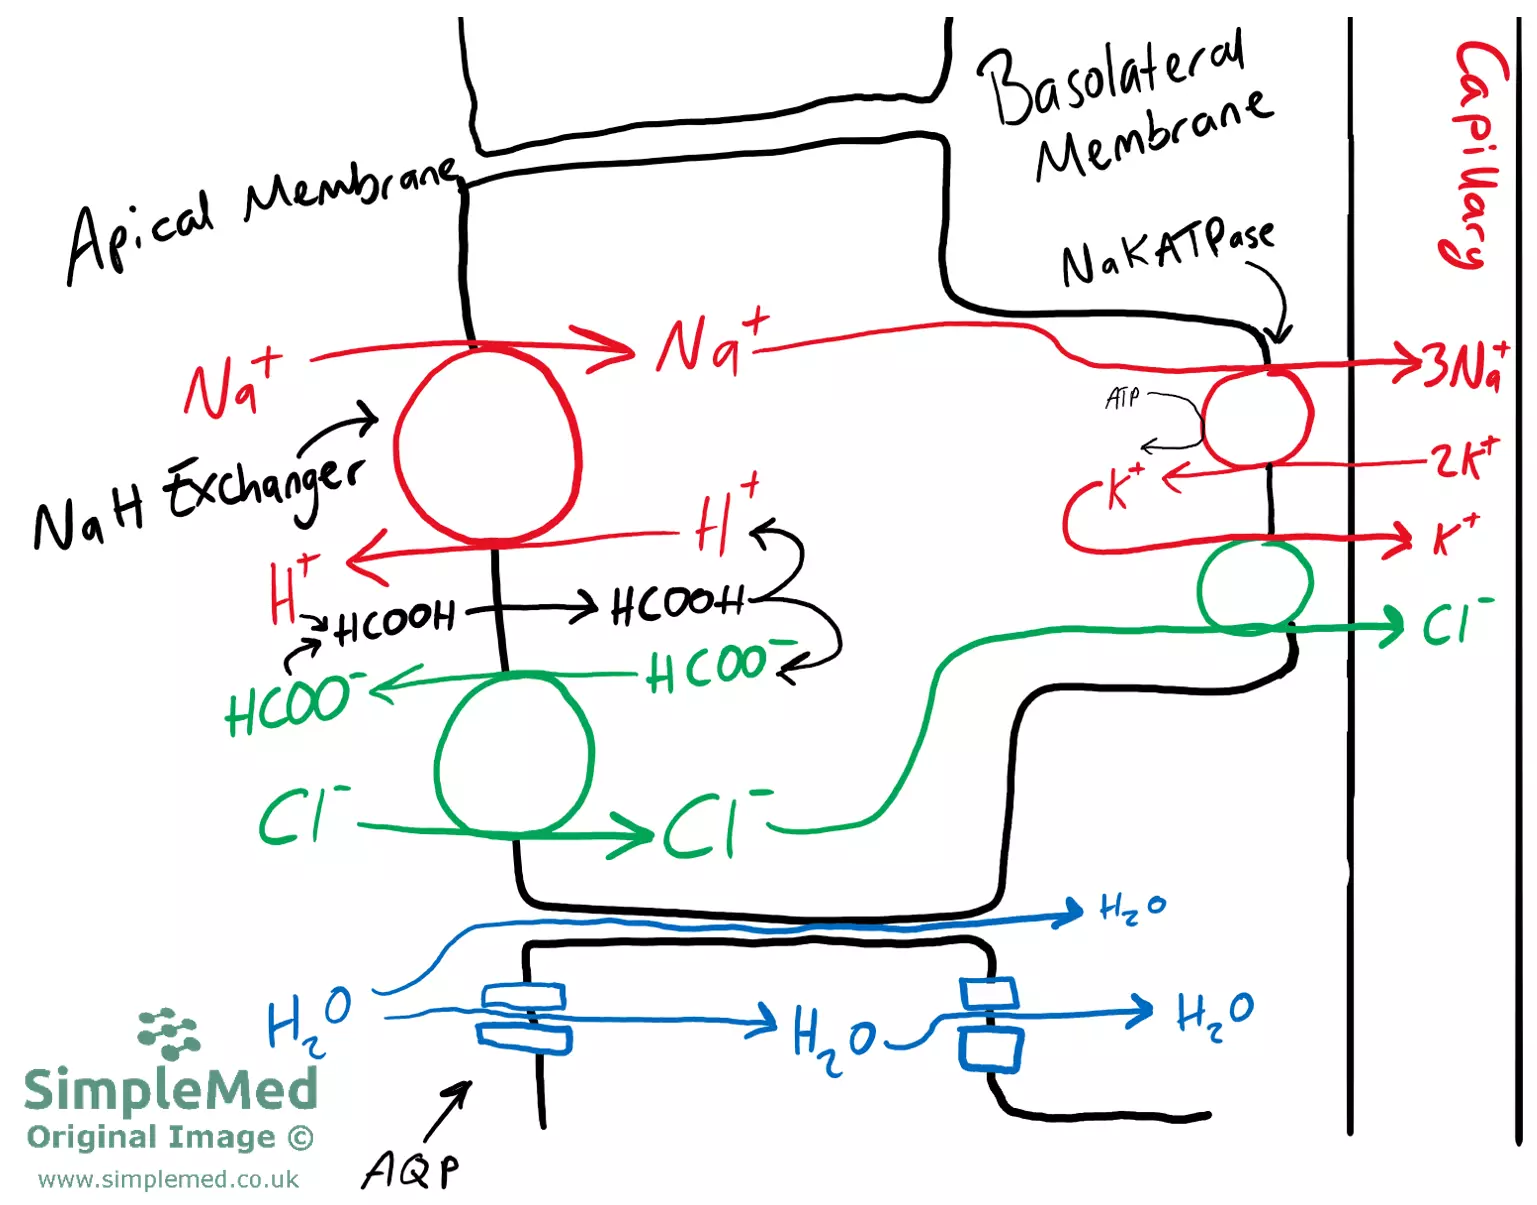 Basolateral
Membrane
Capillary
Apical Membrane
NaKATPase
Na⁺
Na⁺
3Na⁺
ATP
NaH Exchanger
K⁺
2K⁺
H⁺
K⁺
H⁺
HCOOH
HCOOH
HCOO⁻
HCOO⁻
Cl⁻
Cl⁻
Cl⁻
H₂O
H₂O
H₂O
H₂O
AQP
SimpleMed
Original Image ©
www.simplemed.co.uk